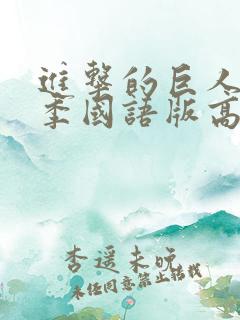 進擊的巨人
季國語版高
李遥未晚
未经同意禁止转载